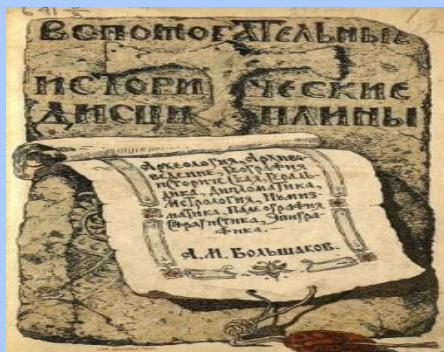 ВСПОМОГАТЕЛЬНЫЕ
ИСТОРИЧЕСКИЕ
ДИСЦИПЛИНЫ
Археология, Архиво-
ведение, География
историческая, Гераль-
дика, Дипломатика,
Метрология, Нумиз-
матика, Палеография
Сфрагистика, Эпигра-
фика.
А. М. Большаков.